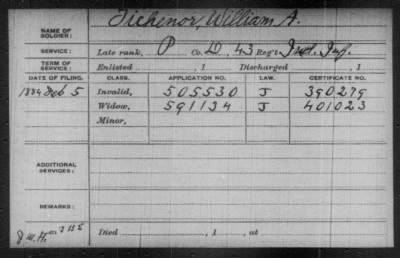 Tichenor, William A.
NAME OF SOLDIER:
SERVICE: Late rank, P Co. D, 43 Reg't Ind. Inf.
TERM OF SERVICE: Enlisted , 1 Discharged , 1
DATE OF FILING. CLASS. APPLICATION NO. LAW. CERTIFICATE NO.
1884 Feb 5 Invalid, 505530 J 390279
Widow, 591134 J 401023
Minor,
ADDITIONAL SERVICES:
REMARKS:
Died , 1 , at